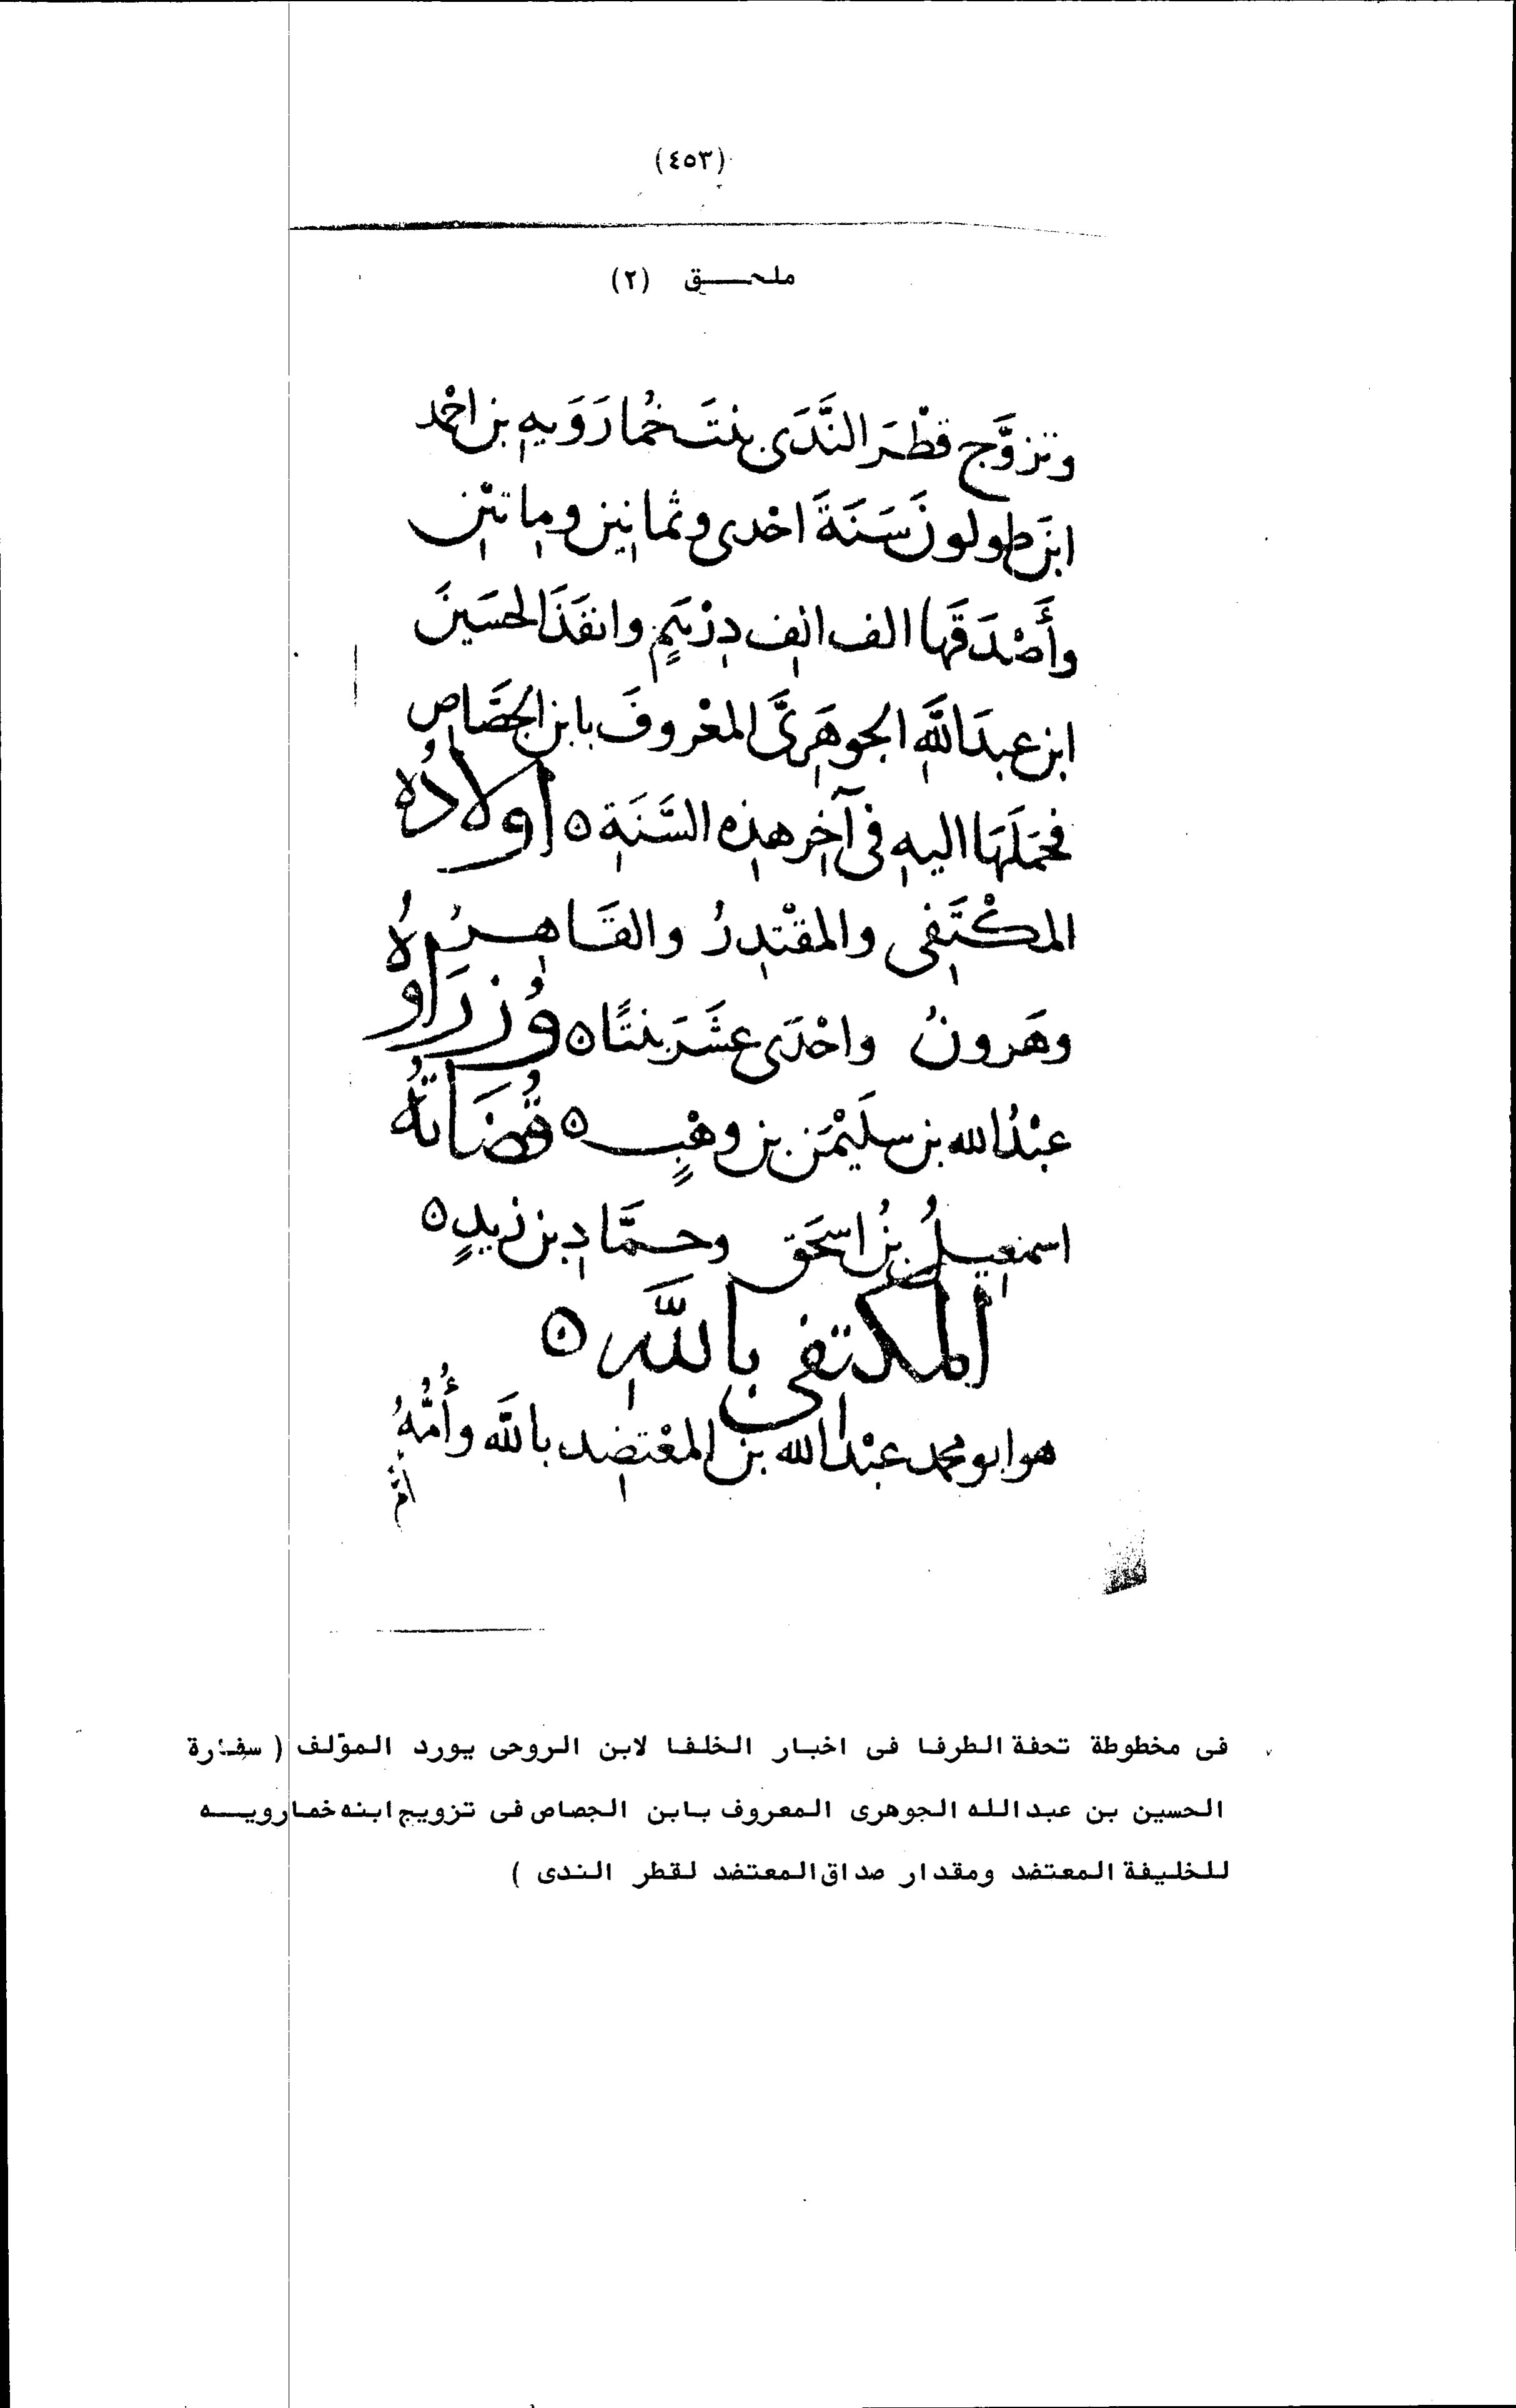 (٤٥٣)
ملحـــق (٢)
وتزوَّج قَطْرَ النَّدَى بنتَ خُمارَوَيهِ بن احْمد
ابنَ طولونَ سَنَةَ احْدى وثمانِين ومِاتَيْن
وأَصْدَقَها الف الفِ دِرْهَمٍ وانفَذَ الحسَينَ
ابن عبدَ اللَّهِ الجوهَرِىَّ المعْروفَ بابن الجصَّاصِ
فحَمَلَهَا اليهِ فى آخِرِ هذِه السَّنَةِ ٥ اولادُهُ
المكْتَفِى والمقْتدِرُ والقَاهِرُ
وهَرونُ واحْدَى عشَرَ بنتًا ٥ وُزرَاوُهُ
عبْدُ الله بن سلَيْمَن بن وهْبٍ ٥ قُضَاتُهُ
اسمعِيلُ بنُ اسحَق وحمَّادِ بن زيدٍ ٥
المكتفى باللَّهِ ٥
هو ابو محمد عبْدُ الله بن المعْتضِد باللَّه وأُمُّهُ
اُمُّ
فى مخطوطة تحفة الطرفا فى اخبار الخلفا لابن الروحى يورد المؤلف ( سفارة
الحسين بن عبد الله الجوهرى المعروف بابن الجصاص فى تزويج ابنه خمارويـــه
للخليفة المعتضد ومقدار صداق المعتضد لقطر الندى )